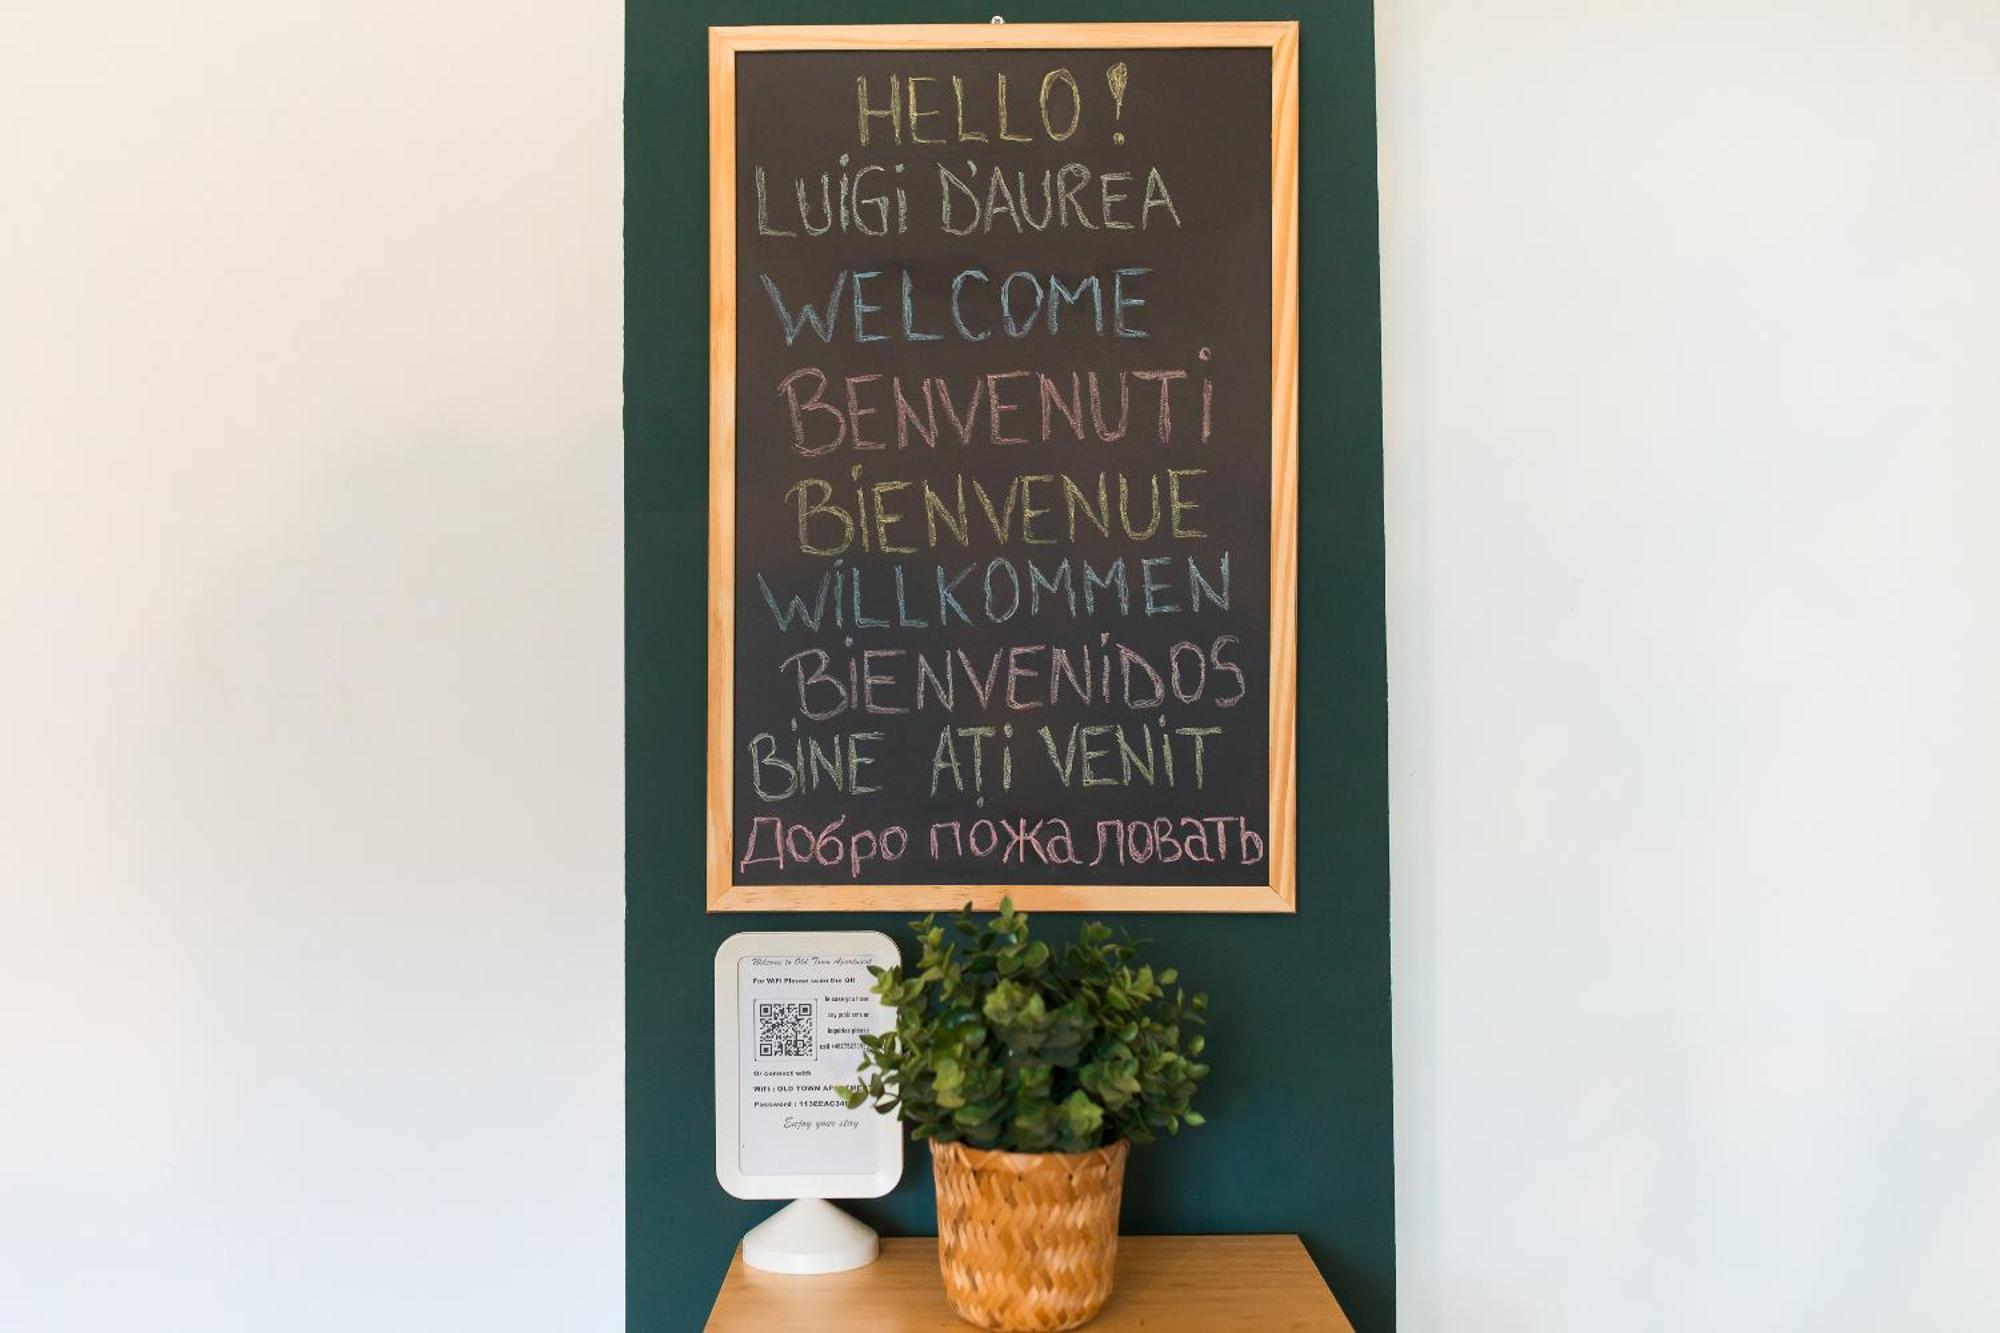 HELLO!
LUiGi D'AUREA
WELCOME
BENVENUTi
BiENVENUE
WiLLKOMMEN
BiENVENiDOS
BiNE AȚi VENiT
Добро пожаловать
Welcome to Old Town Apartment
For WiFi Please scan the QR
In case you have
any problems or
inquiries please
call
Or connect with
WiFi : OLD TOWN
Password :
Enjoy your stay